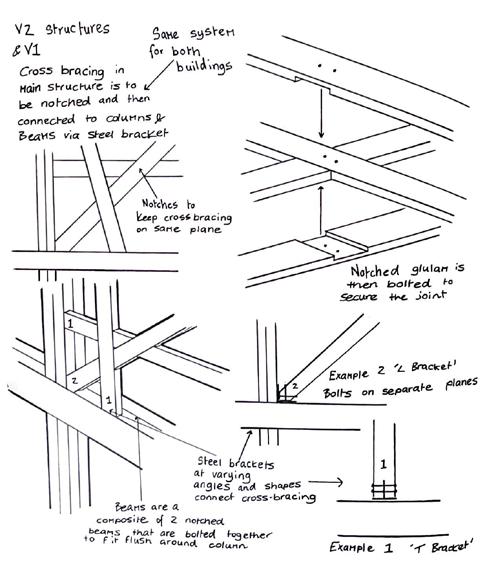 V2 structures
& V1
Same system
for both
buildings
Cross bracing in
Main structure is to
be notched and then
connected to columns &
Beams via steel bracket
Notches to
keep cross bracing
on same plane
Notched glulam is
then bolted to
secure the joint
1
2
1
2
Example 2 'L Bracket'
Bolts on separate planes
Steel brackets
at varying
angles and shapes
connect cross-bracing
1
Beams are a
composite of 2 notched
beams that are bolted together
to fit flush around column
Example 1 'T Bracket'